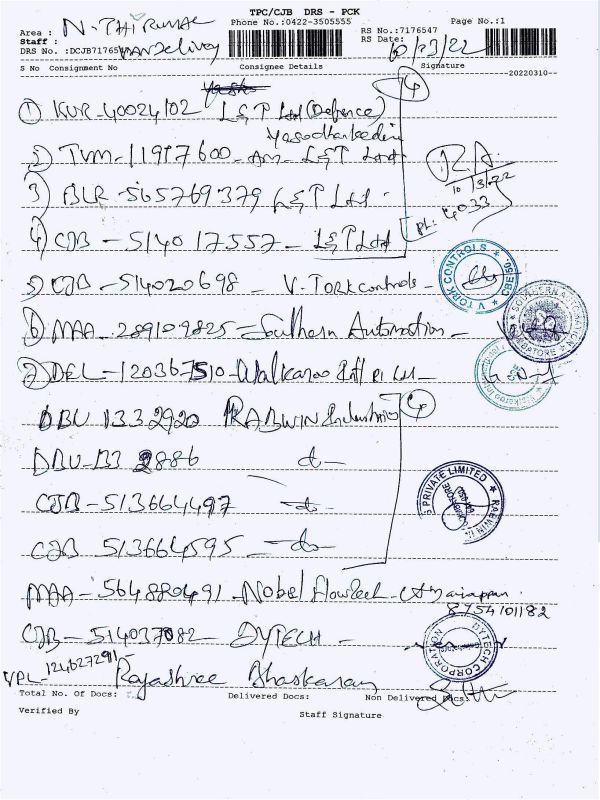 TPC/CJB DRS - PCK
Area : N. THIRUMAL Phone No.:0422-3505555 Page No.:1
Staff : RS No.:7176547
DRS No. :DCJB71765 Van Delivery RS Date: 10/03/22
S No Consignment No Consignee Details Signature
--20220310--
① KUR-40024102 L&T Ltd (Defence) ④
Yasodha
2) TVM-11917600-Am-L&T Ltd R.A.
10/3/22
3) BLR-565769379 L&T Ltd. Ph: 4033
4) CJB-514017557-L&T Ltd
5) CJB-514020698 - V. Tork controls-
V TORK CONTROLS ★ CBE
⑥ MAA-289109825-Southern Automation-
⑦ DEL-120367510-Walkaroo Intl P. Ltd-
DBU 1332920 RABWIN Industries ④
DBU-133 2886 -do-
PRIVATE LIMITED ★ RABWIN
CJB-513664497 -do-
CJB 513664595 -do-
MAA-564880491-Nobel Flowtech
8754101182
CJB-514037082-DYTECH-
DYTECH CORPORATION
VPL-124627291-Rajashree Bhaskaran
Total No. Of Docs: Delivered Docs: Non Delivered Docs:
Verified By Staff Signature